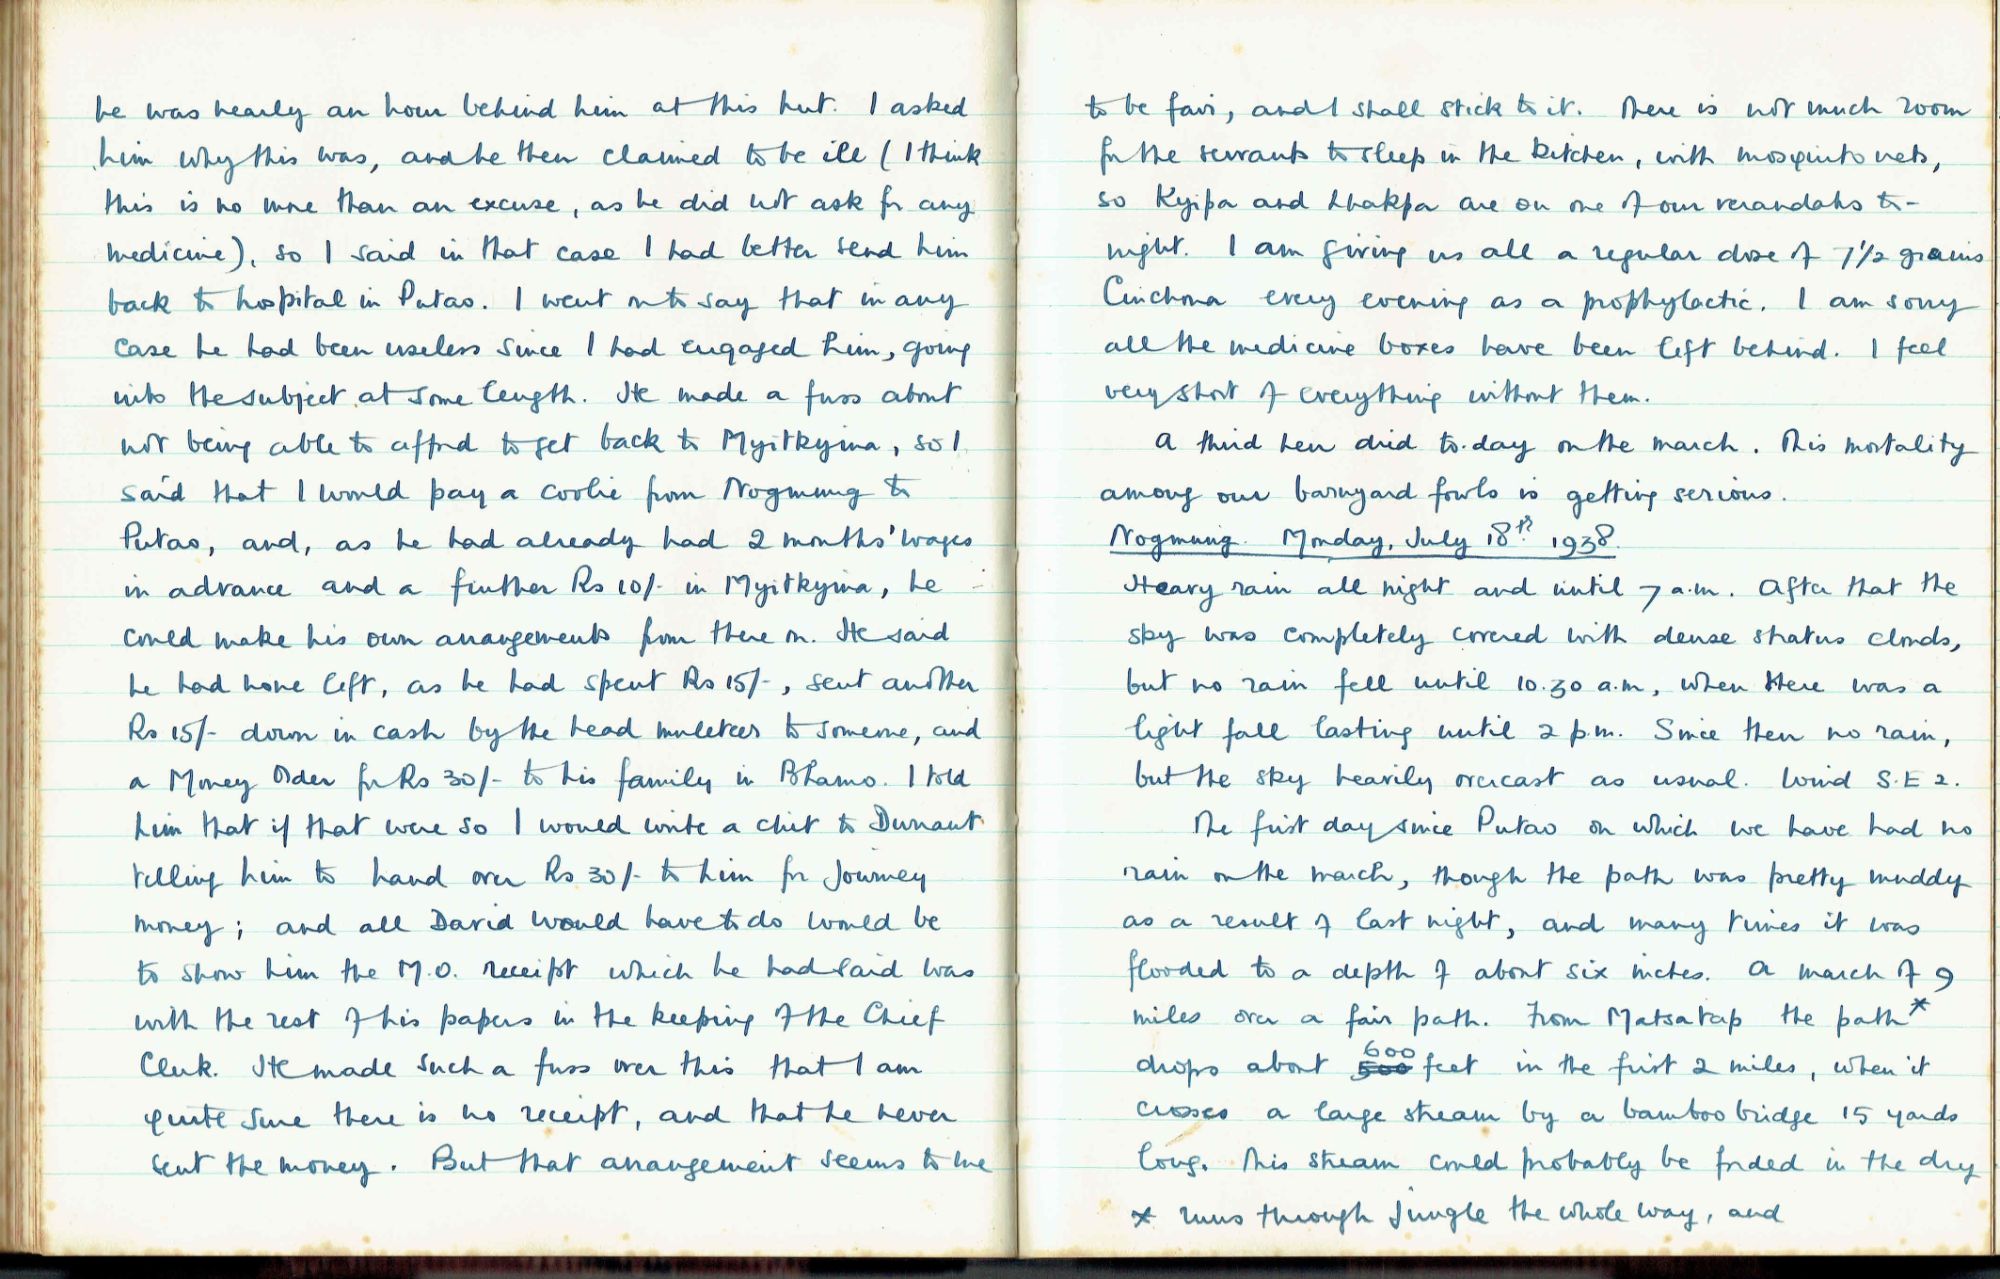 he was nearly an hour behind him at this hut. I asked
him why this was, and he then claimed to be ill (I think
this is no more than an excuse, as he did not ask for any
medicine), so I said in that case I had better send him
back to hospital in Putao. I went on to say that in any
case he had been useless since I had engaged him, going
into the subject at some length. He made a fuss about
not being able to afford to get back to Myitkyina, so I
said that I would pay a coolie from Nogmung to
Putao, and, as he had already had 2 months' wages
in advance and a further Rs 10/- in Myitkyina, he
could make his own arrangements from there on. He said
he had none left, as he had spent Rs 15/-, sent another
Rs 15/- down in cash by the head muleteer to someone, and
a Money Order for Rs 30/- to his family in Bhamo. I told
him that if that were so I would write a chit to Durrant
telling him to hand over Rs 30/- to him for journey
money; and all David would have to do would be
to show him the M.O. receipt which he had said was
with the rest of his papers in the keeping of the Chief
Clerk. He made such a fuss over this that I am
quite sure there is no receipt, and that he never
sent the money. But that arrangement seems to me
to be fair, and I shall stick to it. There is not much room
for the servants to sleep in the kitchen, with mosquito nets,
so Kyipa and Lhakpa are on one of our verandahs to-
night. I am giving us all a regular dose of 7½ grains
Cinchona every evening as a prophylactic. I am sorry
all the medicine boxes have been left behind. I feel
very short of everything without them.
A third hen died to-day on the march. This mortality
among our barnyard fowls is getting serious.
Nogmung. Monday, July 18th 1938.
Heavy rain all night and until 7 a.m. After that the
sky was completely covered with dense stratus clouds,
but no rain fell until 10.30 a.m, when there was a
light fall lasting until 2 p.m. Since then no rain,
but the sky heavily overcast as usual. Wind S.E 2.
The first day since Putao on which we have had no
rain on the march, though the path was pretty muddy
as a result of last night, and many times it was
flooded to a depth of about six inches. A march of 9
miles over a fair path. From Matsatap the path*
drops about 500 600 feet in the first 2 miles, when it
crosses a large stream by a bamboo bridge 15 yards
long. This stream could probably be forded in the dry
* runs through jungle the whole way, and